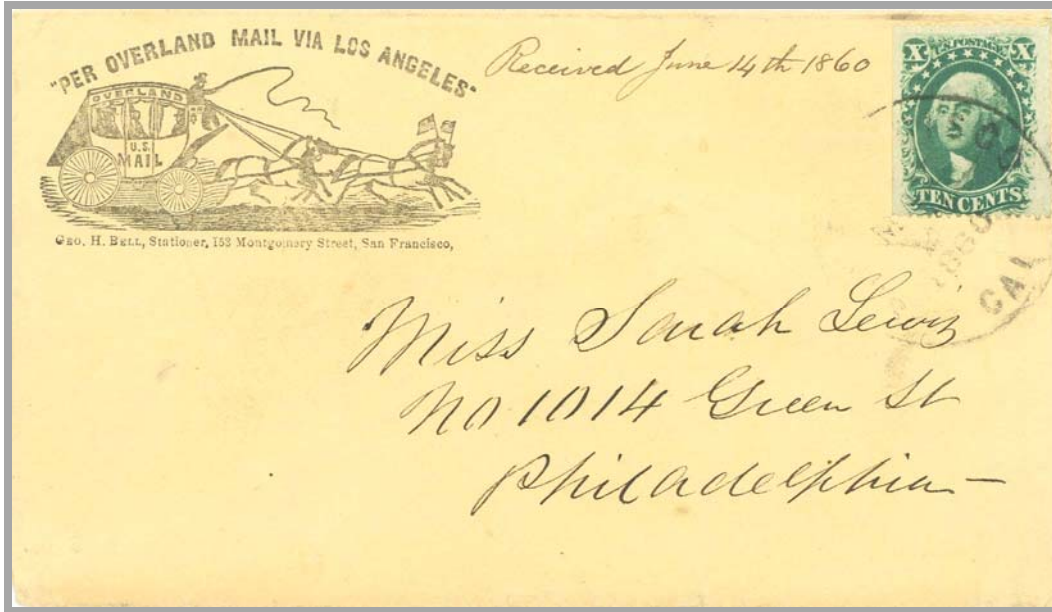 "PER OVERLAND MAIL VIA LOS ANGELES"
OVERLAND
U.S.
MAIL
GEO. H. BELL, Stationer, 153 Montgomery Street, San Francisco,
Received June 14th 1860
X U.S. POSTAGE X
TEN CENTS
1860
CAL
Miss Sarah Lewis
No 1014 Green St
Philadelphia